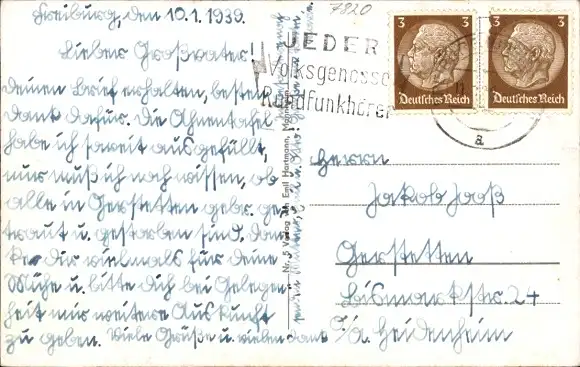 Freiburg, den 10.1.1939.
Lieber Großvater!
Deinen Brief erhalten, besten
Dank dafür. Die Ahnentafel
habe ich soweit ausgefüllt,
nur muß ich noch wissen, ob
alle in Gerstetten gebr. ge-
traut u. gestorben sind. Dan-
ke Dir vielmals für deine
Mühe u. bitte dich bei Gelegen-
heit mir weitere Auskunft
zu geben. Viele Grüße u. vielen Dank
Nr. 5 Verlag von Emil Hartmann, Mannheim
7820
JEDER
Volksgenosse
Rundfunkhörer
3 3
Deutsches Reich
3 3
Deutsches Reich
a
Herrn
Jakob Jooß
Gerstetten
Bismarckstr. 24
a. Heidenheim